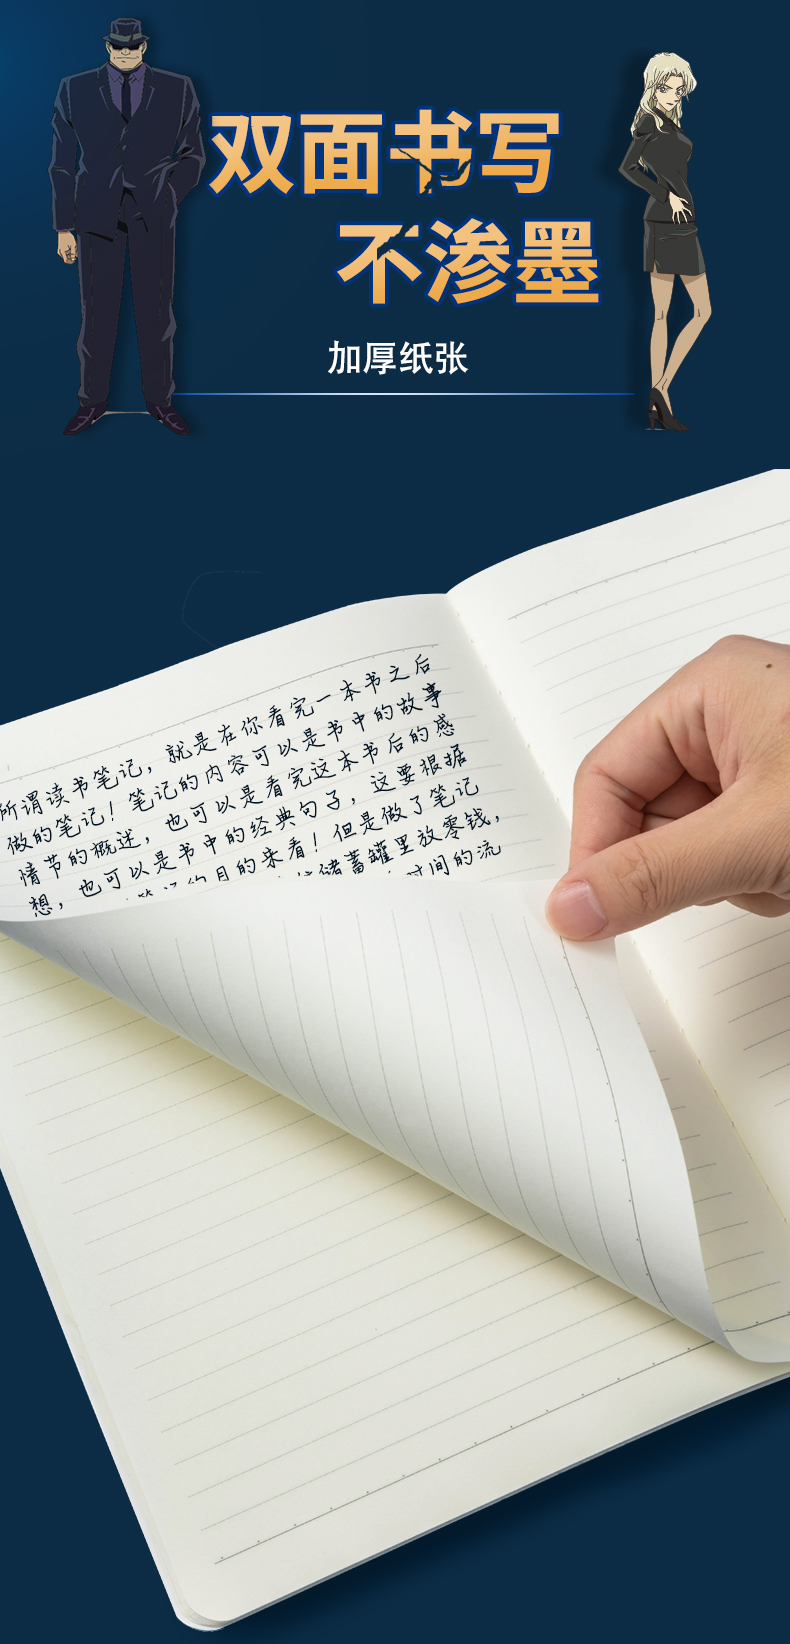 双面书写
不渗墨
加厚纸张
所谓读书笔记，就是在你看完一本书之后
做的笔记！笔记的内容可以是书中的故事
情节的概述，也可以是看完这本书后的感
想，也可以是书中的经典句子，这要根据
的目的来看！但是做了笔记
储蓄罐里放零钱，
时间的流